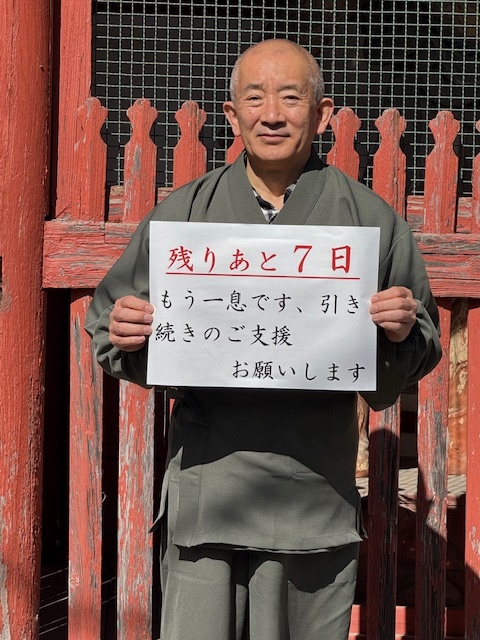 残りあと７日
もう一息です、引き
続きのご支援
お願いします